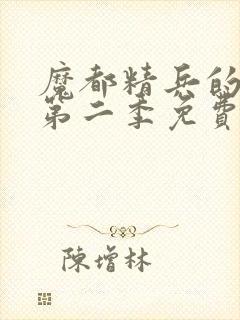 魔都精兵的
第二季免費
陳增林